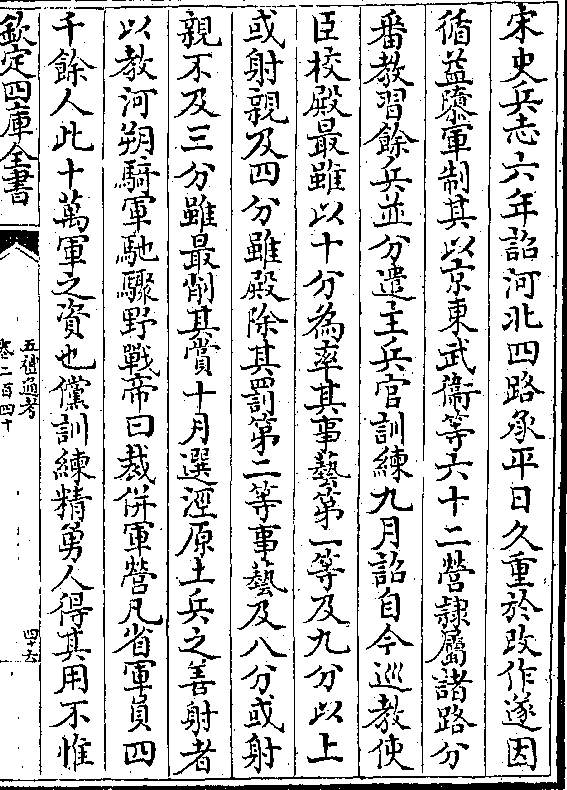 宋史兵志六年詔河北四路承平日久重於改作遂因
循益隳軍制其以京東武衞等六十二營隷屬諸路分
番教習餘兵並分遣主兵官訓練九月詔自今巡教使
臣校殿最雖以十分為率其事藝第一等及九分以上
或射親及四分雖殿除其罰第二等事藝及八分或射
親不及三分雖最削其賞十月選涇原土兵之善射者
以教河朔騎軍馳驟野戰帝曰裁併軍營凡省軍員四
千餘人此十萬軍之資也儻訓練精勇人得其用不惟
欽定四庫全書
五禮通考
卷二百四十